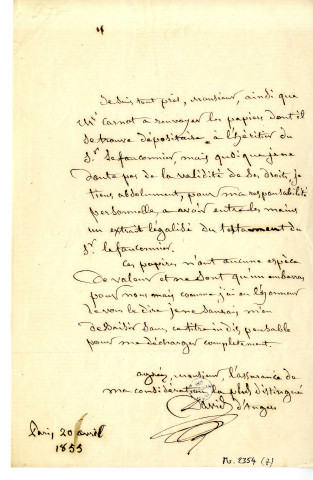 Je suis tout prêt, Monsieur, ainsi que
Mr Carnot a renvoyer les papiers dont il
se trouve dépositaire, à l'héritier du
Sr. Lefauconnier, mais quoi que je ne
doute pas de la validité de ses droits, je
tiens absolument, pour ma responsabilité
personnelle, a avoir entre les mains
un extrait légalisé du testament du
Sr. Lefauconnier.
Ces papiers n'ont aucune espèce
de valeur et ne sont qu'un embarras
pour nous mais comme j'ai eu l'honneur
de vous le dire je ne saurais m'en
dessaisir sans ce titre indispensable
pour me décharger complètement.
agréez, monsieur, l'assurance de
ma considération la plus distinguée
David d'Angers
Paris, 20 avril
1855
Ms. 2354 (7)